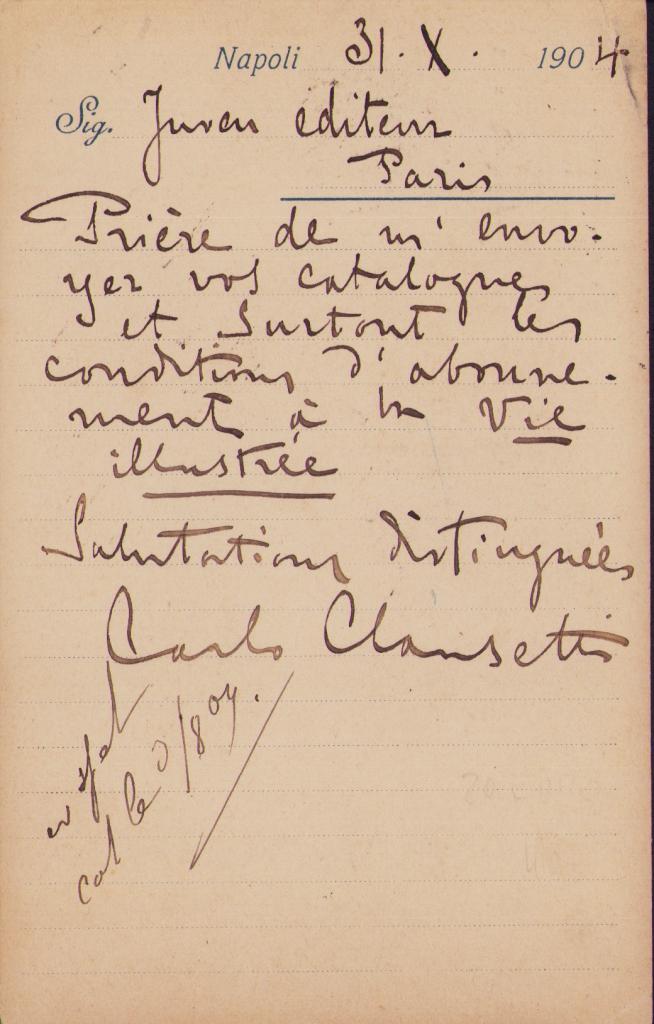 Napoli 31. X. 1904
Sig. Juven editeur
Paris
Prière de m'envo-
yer vos catalogues
et surtout les
conditions d'abonne-
ment à la Vie
illustrée
Salutations distinguées
Carlo Clausetti
cat le